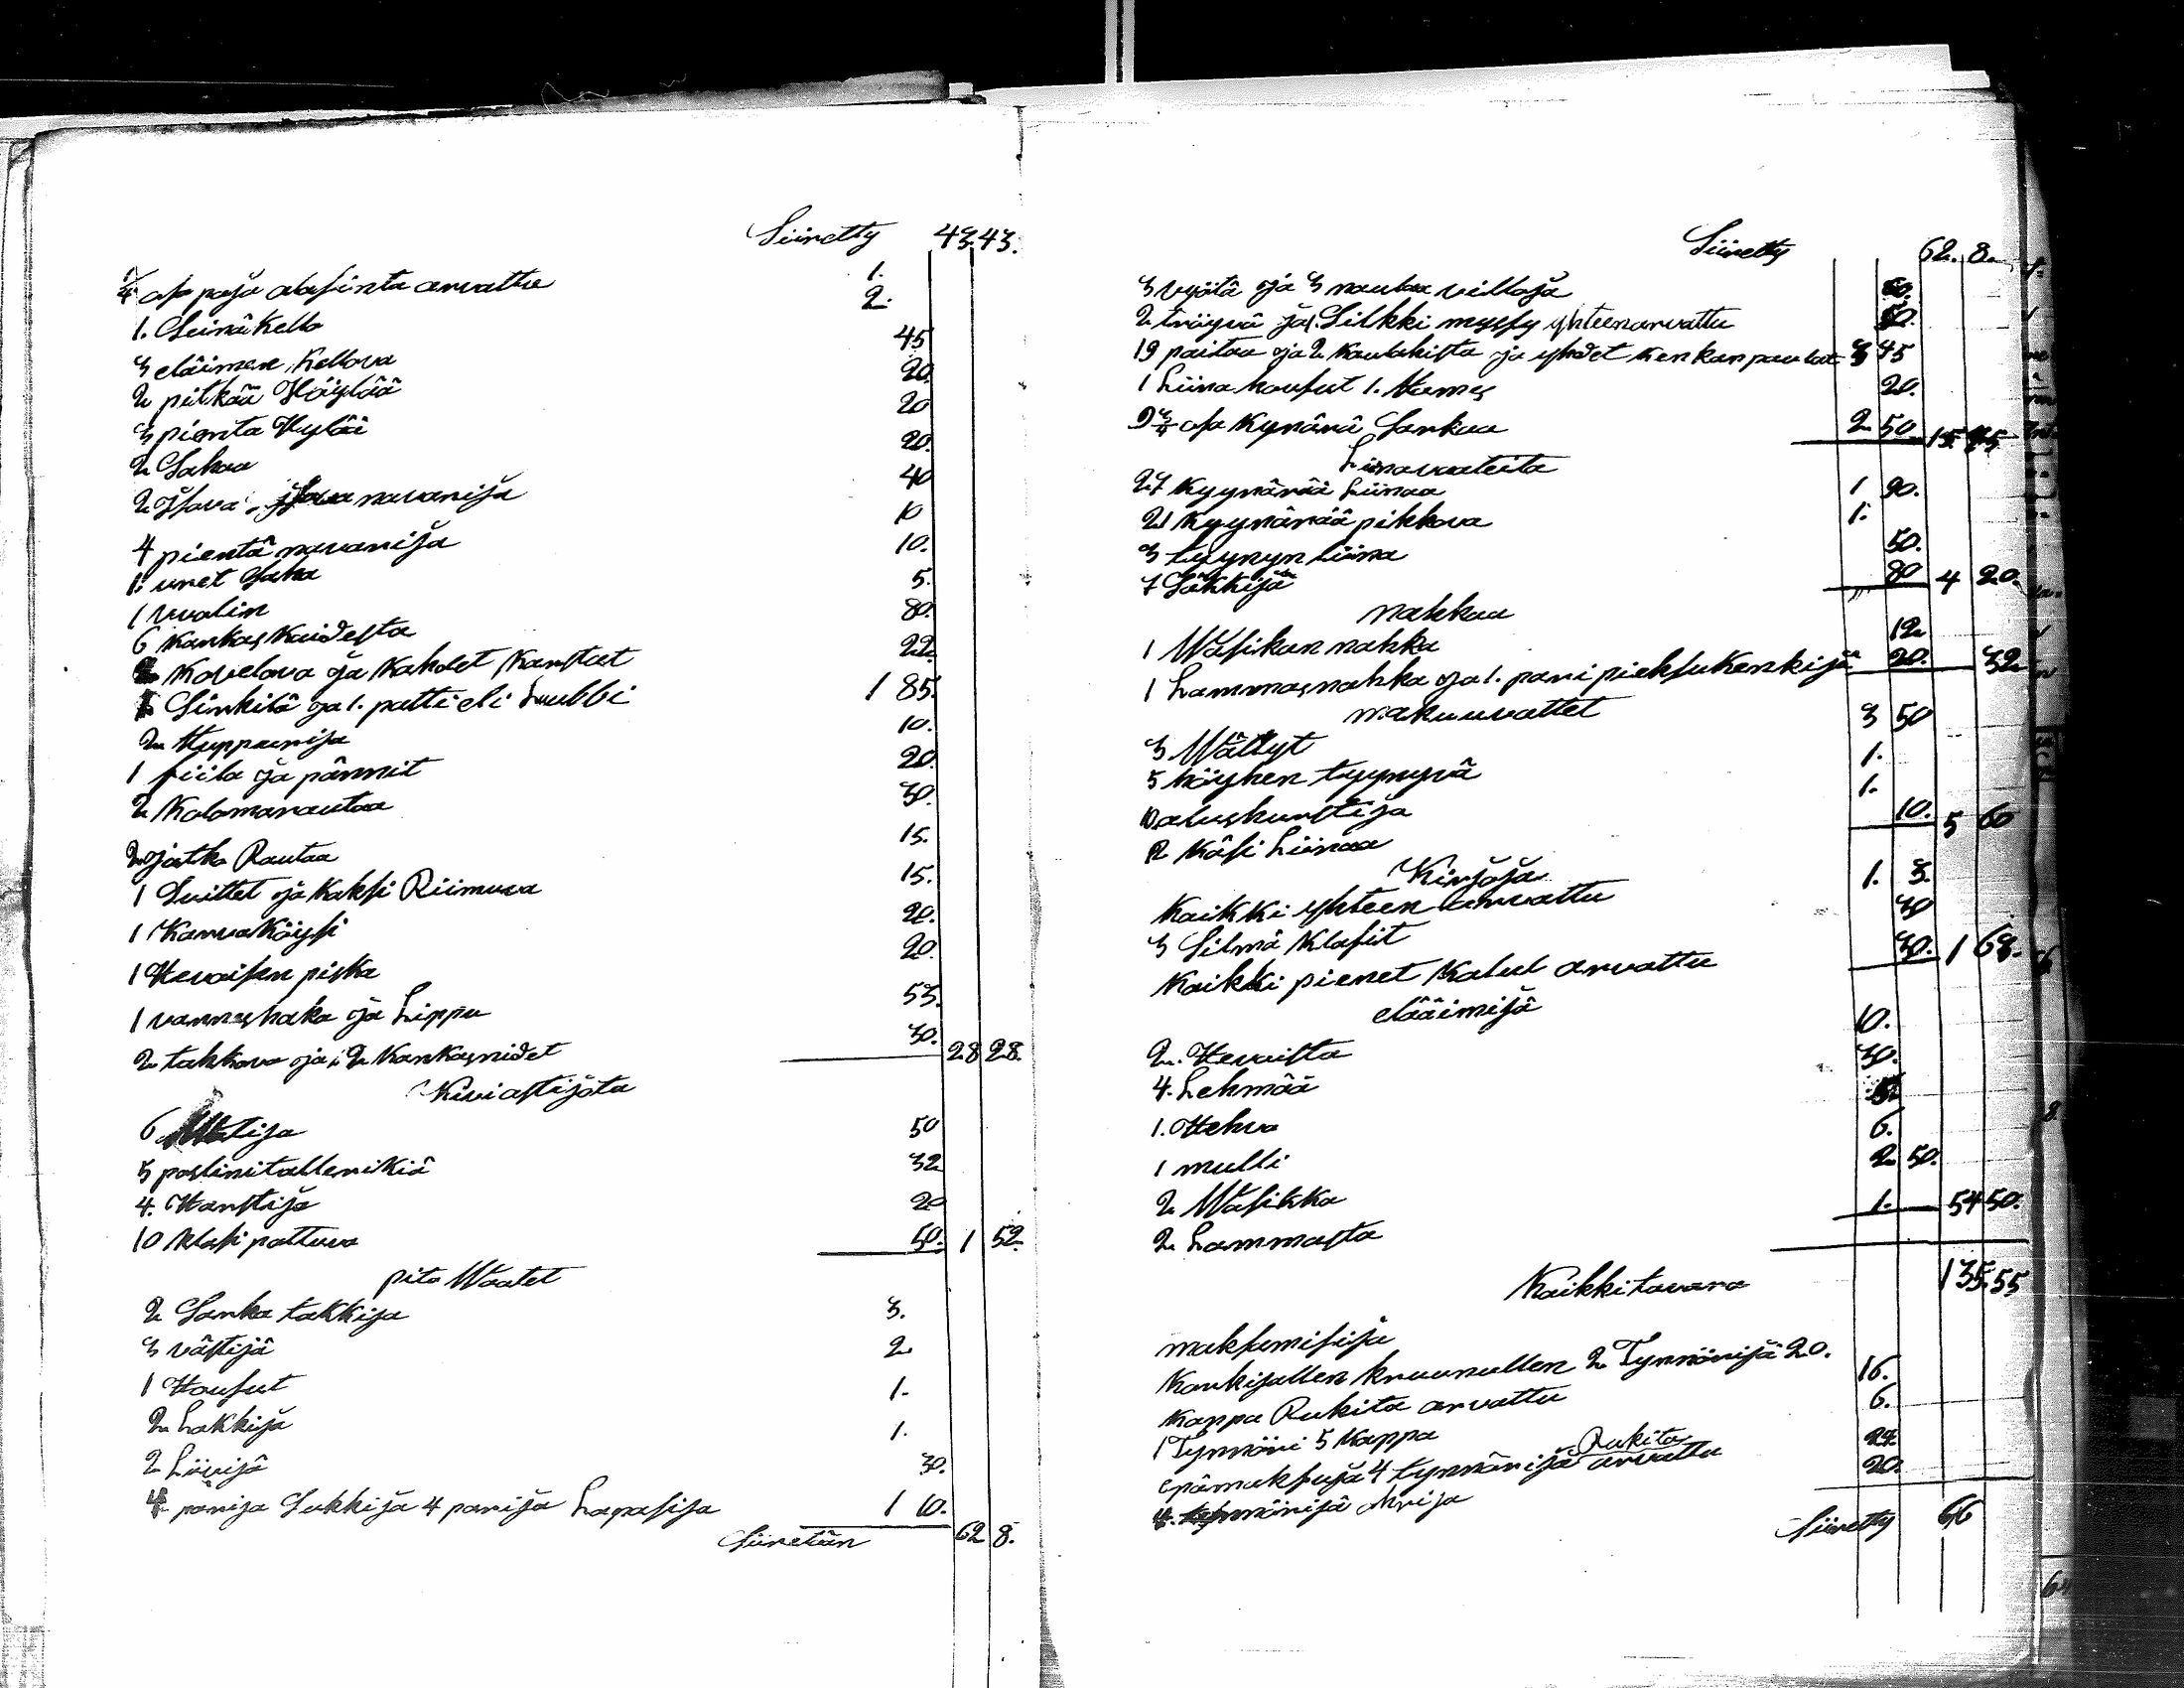 Siiretty 43. 43.
1/4 osa paja alasinta arvattu 1.
1. Seinä Kello 2.
3 eläimen Kellova 45
2 pitkää Höylää 20.
3 pientä Hylää 20
2 Sahaa 20.
2 Isova navarija 40
4 pientä navarija 10
1. uret Saha 10.
1 vuolin 5.
6 Kankas Kaidesta 80.
Kovelova ja Kahdet Karstat 22.
Sinkilä ja 1. patti eli Luubbi 1 85.
2 Kupparija 10.
1 fiila ja pännit 20.
2 Kolomarautaa 30.
2 jatko Rautaa 15.
1 Suittet ja Kaksi Riimuva 15.
1 Karvaköysi 20.
1 Hevoisen piska 20.
1 vanneshaka ja Lippu 55.
2 tahkova ja 2 Kankasnidet 30. 28 28.
Kiviastijota
6 50
5 posliinitallerikiä 32
4. Karstija 20
10 Klasi pottuva 50. 1 52.
pito Waatet
2 Sarka takkija 3.
3 västijä 2
1 Housut 1.
2 Lakkija 1.
2 Liivijä 30.
4 parija Sukkija 4 parija Lapasija 1 10.
Siiretään 62 8.
Siiretty 62. 8.
3 vyötä ja 3 naulaa villoja 60.
2 tröyvä ja 1. Silkki myssy yhteenarvattu 50.
19 paitaa ja 2 Kaulahista ja yhdet Kenkanpaulat 3 45
1 Liina housut 1. Hames 20.
9 3/4 osa Kynärä Sarkaa 2 50 15
Liinavaateita
27 Kyynärää Liinaa 1 90.
21 Kyynärää pikkova 1.
3 tyynyn Liina 50.
7 Säkkijä 80 4 20.
nahkaa
1 Wasikan nahka 12
1 Lammasnahka ja 1. pari pieksukenkijä 20. 32
makuuvattet
3 Wällyt 3 50
5 höyhen tyynyvä 1.
aluskurstija 1.
2 Käsi Liinaa 10. 5 60
Kirjoja
Kaikki yhteen arvattu 1. 3.
3 Silmä Klasit 30
Kaikki pienet Kalut arvattu 30. 1 63.
elääimijä
2. Hevoista 10.
4. Lehmää 30.
1. Hehvo 5
1 mulli 6.
2 Wasikka 2 50.
2 Lammasta 1. 54 50.
Kaikki tavara 135.55
maksamisija
Kaukijallen kruunullen 2 Tynnörijä 20.
Kappa Rukita arvattu 16.
1 Tynnöri 5 Kappa 6.
epämaksuja 4 tynnörijä Rukita arvattu 24.
4. tynnörijä ohrija 20.
Siiretty 66